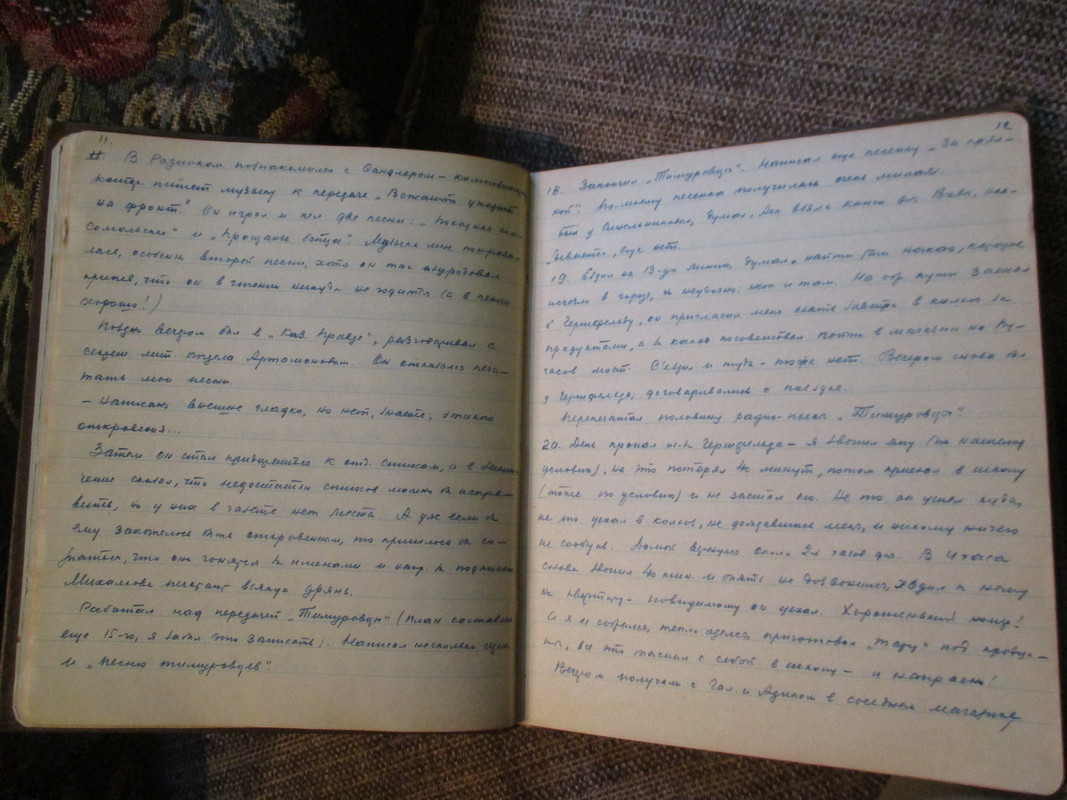 11.
В Радиокоме познакомился с Сандлером – композитором
который пишет музыку к передаче „Вожатый уходит
на фронт." Он играл и пел две песни: „Походная ком-
сомольская" и „Прощание бойца". Музыка мне понрави-
лась, особенно второй песни, хотя он так изуродовал
припев, что он в чтении никуда не годится (а в пении
хорошо!)
Поздно вечером был в „Каз. Правде", разговаривал с
секрет. лит. отдела Артамоновым. Он отказался печа-
тать мои песни.
– Написано внешне гладко, но нет, знаете, этакого
откровения...
Затем он стал придираться к отд. строкам, а в заклю-
чение сказал, что недостатки стихов можно бы испра-
вить, но у них в газете нет места. А уж если бы
ему захотелось быть откровенным, то пришлось бы со-
знаться, что они гонятся за именами и напр. за подписью
Михалкова печатают всякую дрянь.
Работал над передачей „Тимуровцы" (план составлен
еще 15-го, я забыл это записать). Написал несколько сцен
и „Песню тимуровцев".
19
18. Закончил „Тимуровцы". Написал еще песенку
По-моему песенка получилась очень милая.
был у Синельникова, думал, Ася взяла книги для Вивы, ока-
зывается, еще нет.
19. Ездил на 13-ую линию, думал найти Гале какао,
исчезло в городе, но неудачно: нет и там. На обр. пути заехал
к Герцфельду, он пригласил меня ехать завтра в колхоз за
продуктами, а за какао посоветовал пойти в магазин на
часов мост. Съездил и туда – тоже нет. Вечером снова был
у Герцфельда, договаривались о поездке.
Перепечатал половину радио-пьесы „Тимуровцы".
20. День пропал из-за Герцфельда – я звонил ему (по нашему
условию), на это потерял 40 минут, потом приехал в школу
(тоже по условию) и не застал его. Не то он ушел куда,
не то уехал в колхоз, не дождавшись меня, и никому ничего
не сообщив. Домой вернулся около 2х часов дня. В 4 часа
снова звонил 40 мин. и опять не дозвонился, ходил к нему
на квартиру – повидимому он уехал. Хорошенький номер!
А я и собрался, тепло оделся, приготовил „тару" под продук-
ты, все это таскал с собой в школу – и напрасно!
Вечером получали с Гал. и Адиком в соседнем магазине